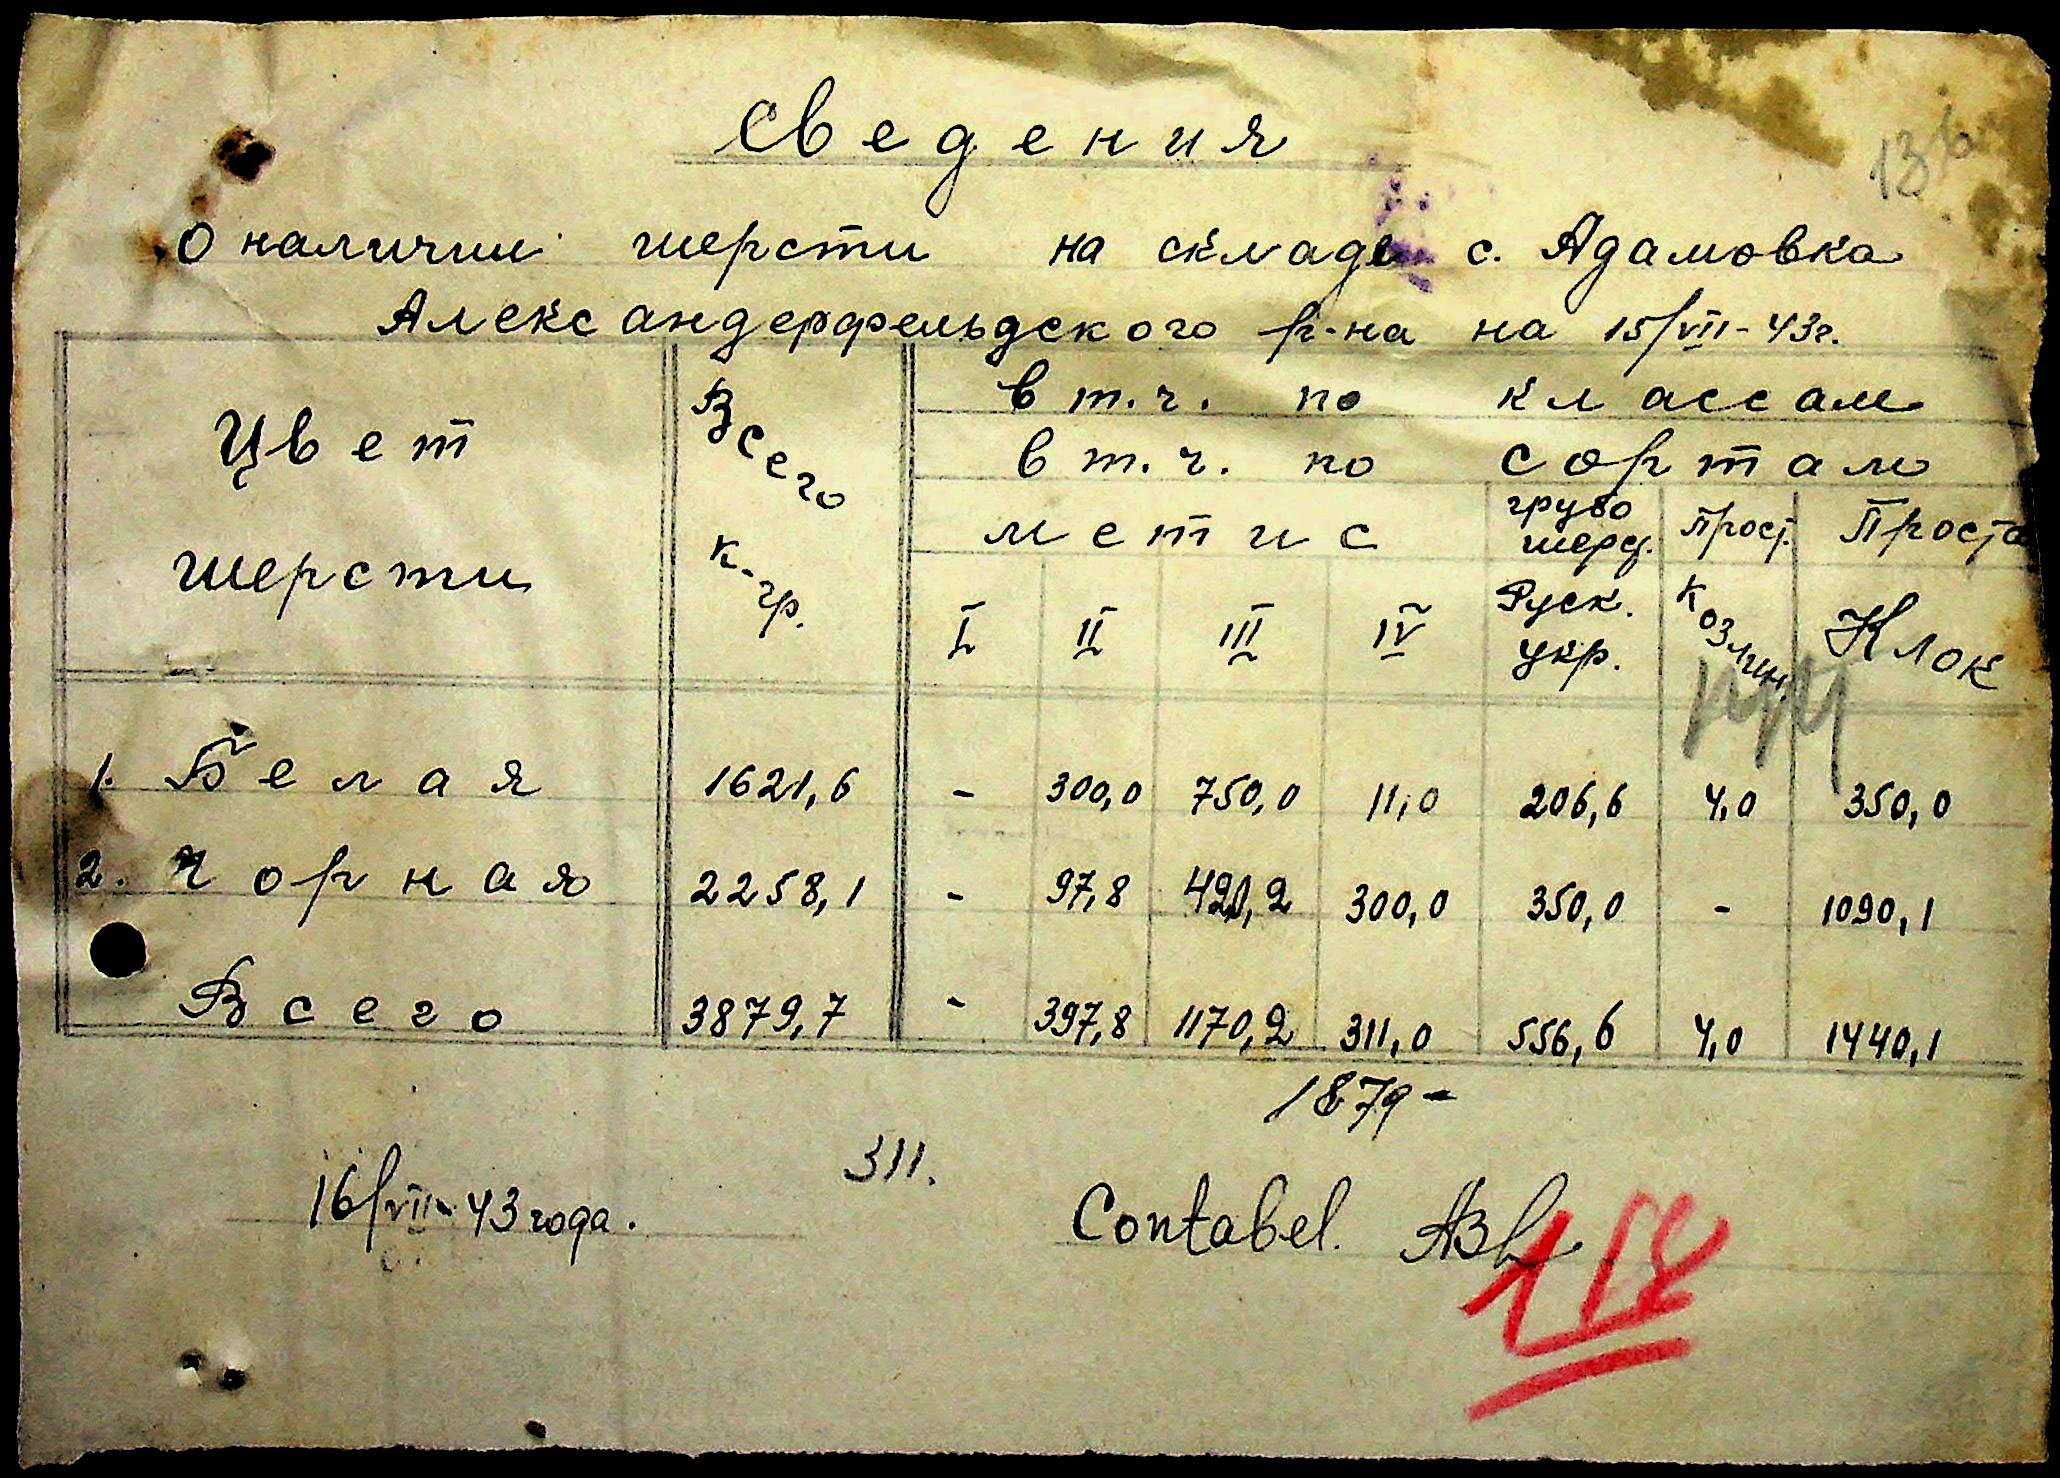 Сведения
О наличии шерсти на складе с. Адамовка
Александерфельдского р-на на 15/VII-43г.
Цвет шерсти
Всего к-гр.
в т.ч. по классам
в т.ч. по сортам
метис
грубо шерс.
Прост.
Проста
I II III IV
Руск. укр.
козлин.
Клок
1. Белая 1621,6 - 300,0 750,0 11,0 206,6 4,0 350,0
2. Чорная 2258,1 - 97,8 420,2 300,0 350,0 - 1090,1
Всего 3879,7 - 397,8 1170,2 311,0 556,6 4,0 1440,1
1879-
311.
16/VII-43 года.
Contabel.